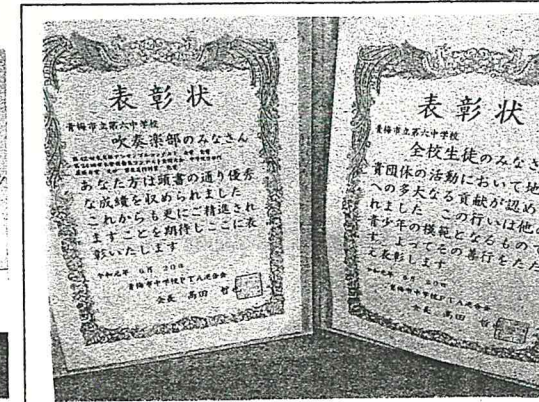 表彰状
青梅市立第六中学校
吹奏楽部のみなさん
あなた方は頭書の通り優秀
な成績を収められました
これからも更にご精進され
ますことを期待しここに表
彰いたします
令和元年 6月 20日
青梅市中学校PTA連合会
会長 高田 哲
表彰状
青梅市立第六中学校
全校生徒のみなさ
貴団体の活動において地
への多大なる貢献が認め
れました この行いは他の
青少年の模範となるもので
す よってその善行をたた
え表彰します
令和元年 6月 20日
青梅市中学校PTA連合会
会長 高田 哲